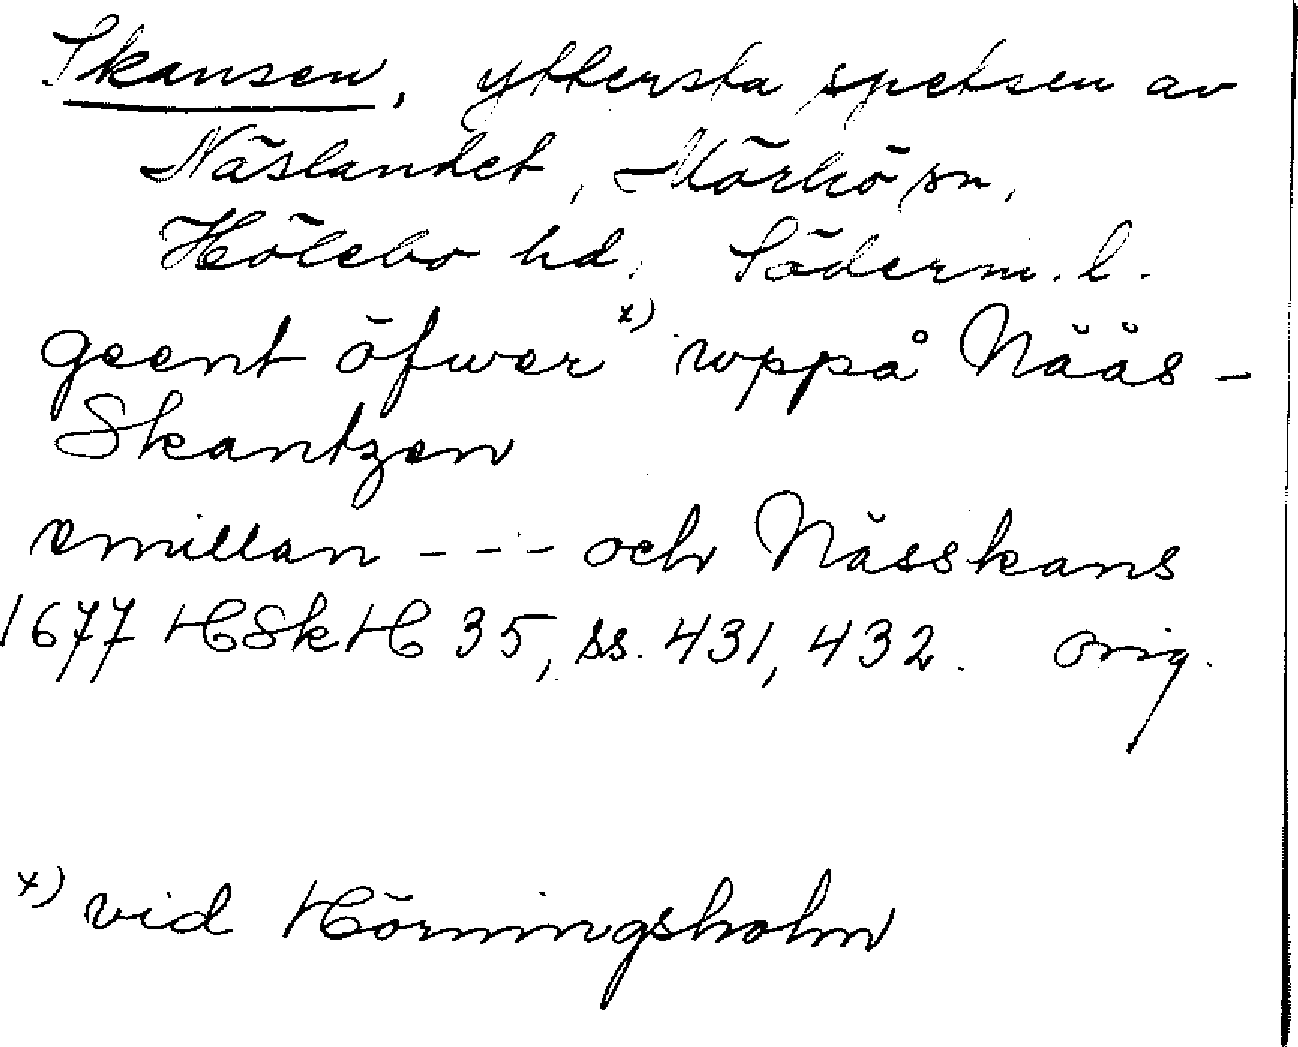 Skansen, yttersta spetsen av
Näslandet, Mörkö sn,
Hölebo hd, Söderm. l.
geent öfwer x) wppå Nääs-
Skantzen
emillan - - - och Nässkans
1677 HSkH 35, ss. 431, 432. Orig.
x) vid Hörningsholm